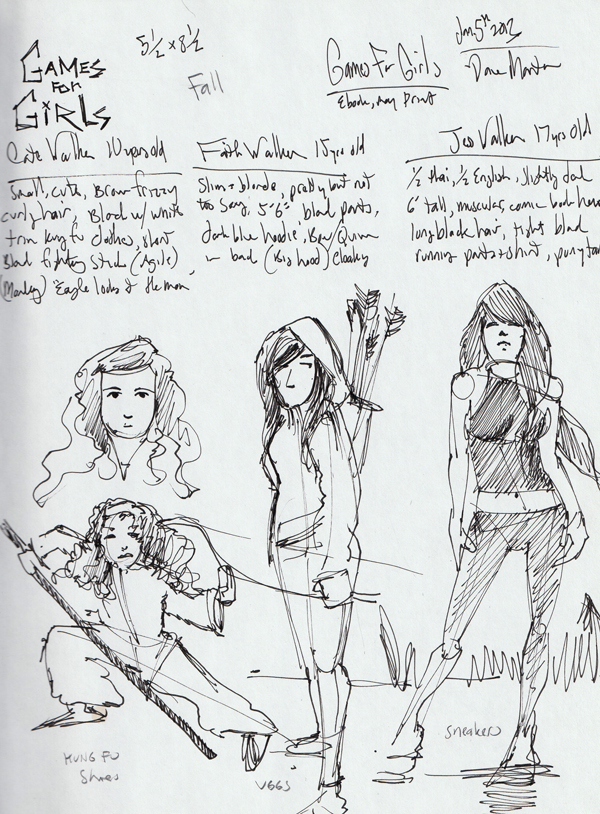 GAMES
FOR
GiRLS
5 1/2 x 8 1/2
Fall
Games For Girls
Ebook, may print
Jan 5th 2013
Dave
Cate Walker 10 years old
Small, cute, Brown frizzy
curly hair, Black w/ white
trim kung fu clothes, short
Black fighting stick (Agile)
(Monkey) Eagle looks
Faith Walker 15 yrs old
Slim + blonde, pretty but not
too sexy, 5'6" black pants,
dark blue hoodie, Bow/Quiver
in back (Big hood) cloaky
Jess Walker 17 yrs Old
1/2 thai, 1/2 English, slightly dark
6' tall, muscular, comic book hero
long black hair, tight black
running pants + shirt, pony tail
KUNG FU
Shoes
UGGS
Sneakers